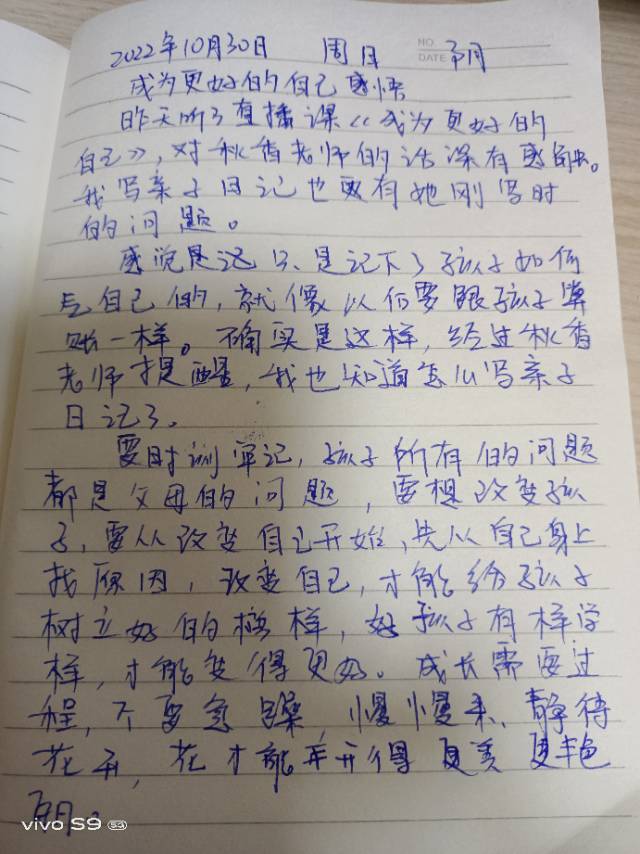 2022年10月30日 周日 NO. DATE 阴
成为更好的自己感悟
昨天听了直播课《成为更好的
自己》,对秋香老师的话深有感触。
我写亲子日记也更有她刚写时
的问题。
感觉是记只是记下了孩子如何
气自己的,就像以后要跟孩子算
账一样。不确实是这样,经过秋香
老师提醒,我也知道怎么写亲子
日记了。
要时刻牢记,孩子所有的问题
都是父母的问题,要想改变孩
子,要从改变自己开始,先从自己身上
找原因,改变自己,才能给孩子
树立好的榜样,好孩子有样学
样,才能变得更好。成长需要过
程,不要急躁,慢慢来、静待
花开,花才能开得更美更丰色
明。
vivo S9 5G